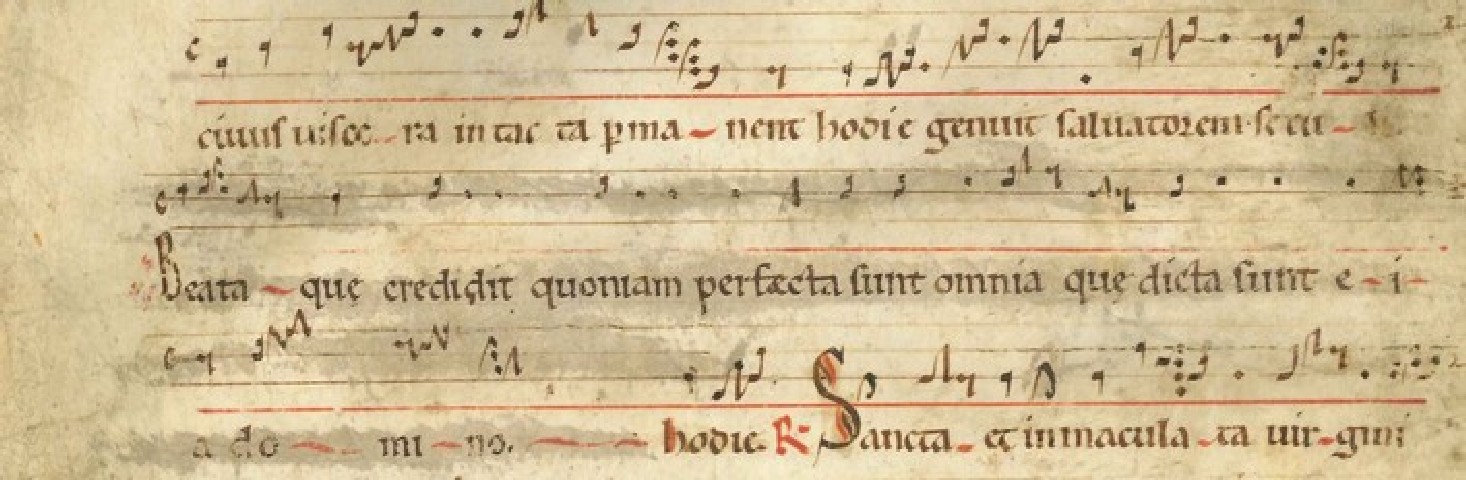 cuius uisce-ra intac ta pma-nent hodie genuit saluatorem secu-
Beata-que credidit quoniam perfecta sunt omnia que dicta sunt e-i-
a do-mi-no. hodie. R Sancta-et inmacula-ta uir-gini